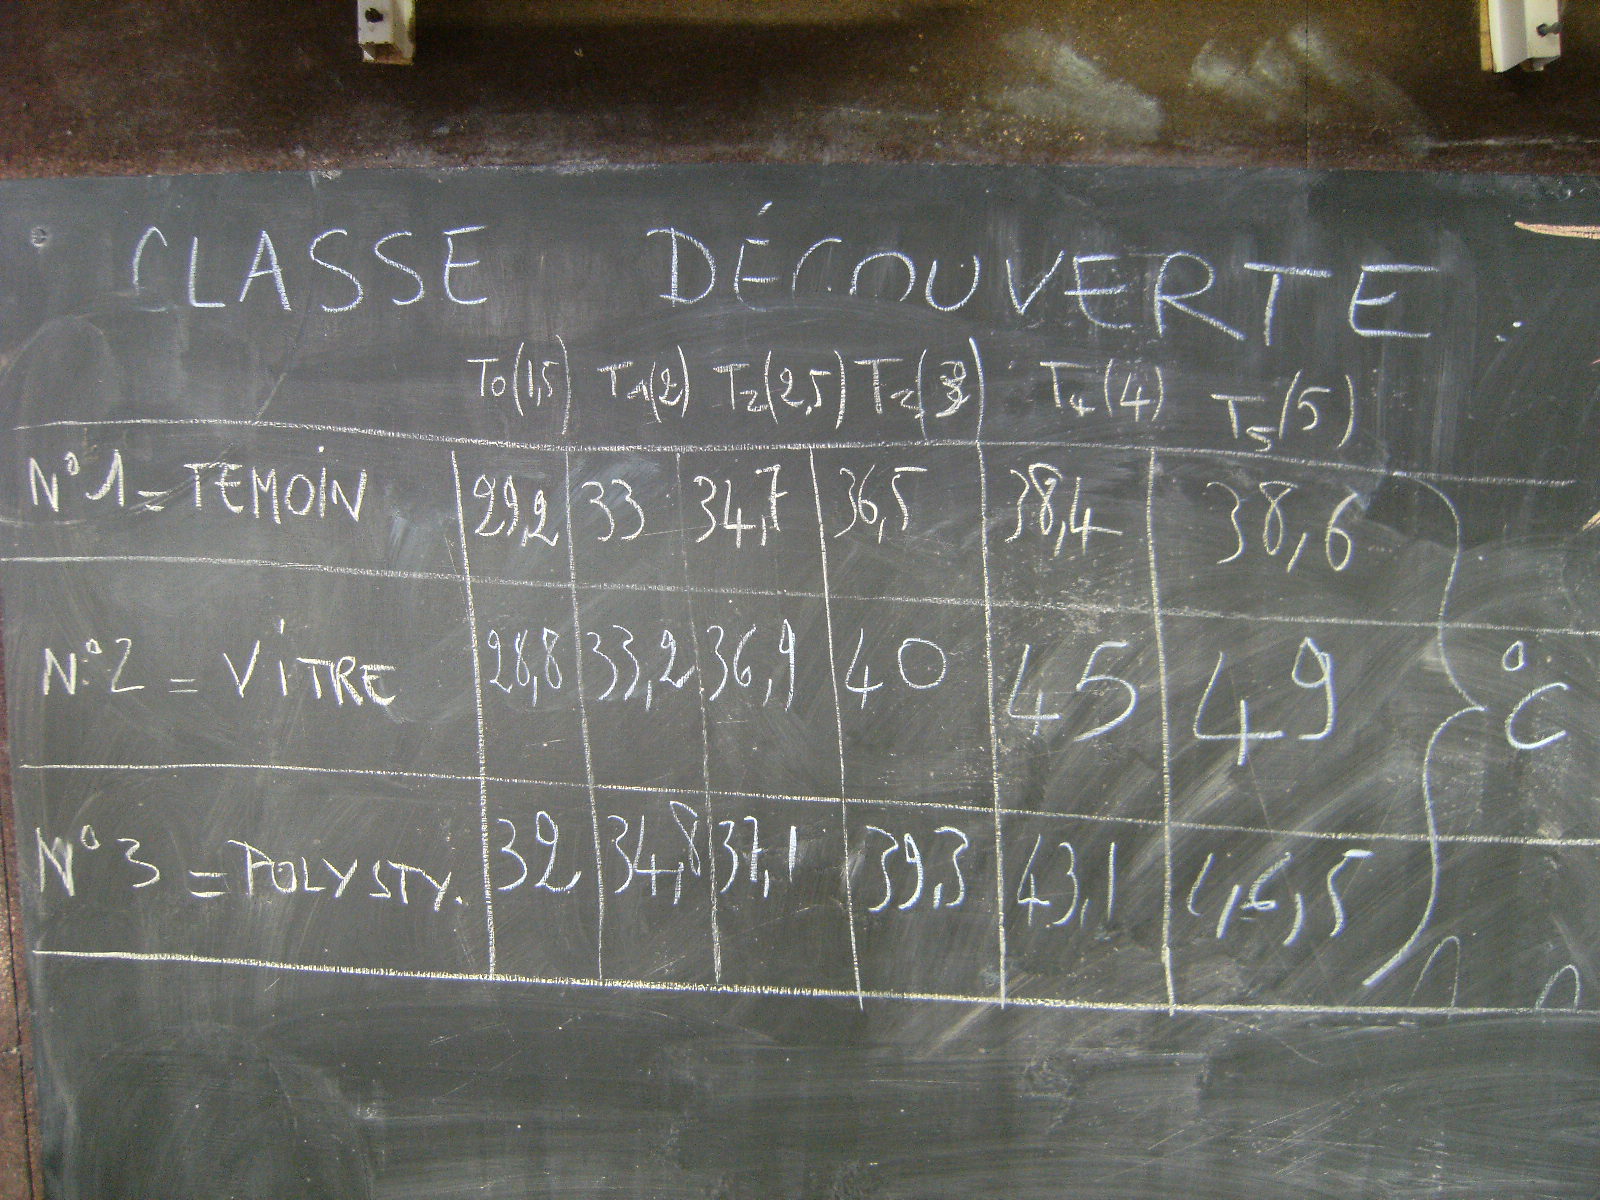 CLASSE DÉCOUVERTE.
T0(1,5) T1(2) T2(2,5) T2(3) T4(4) T5(5)
N°1 = TEMOIN 29,2 33 34,7 36,5 38,4 38,6
N°2 = VITRE 28,8 33,2 36,9 40 45 49 °C
N°3 = POLYSTY. 32 34,8 37,1 39,3 43,1 46,5